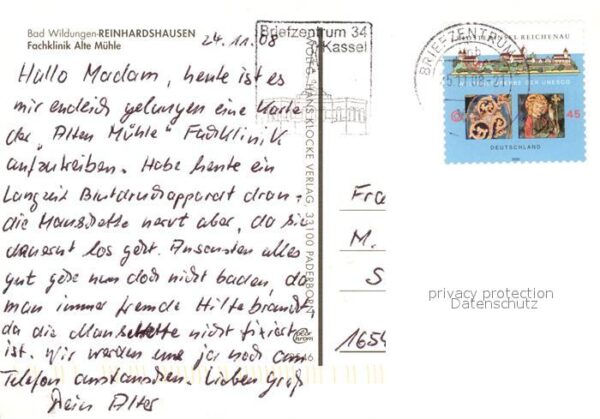 Bad Wildungen-REINHARDSHAUSEN
Fachklinik Alte Mühle
24.11.08
Hallo Madam, heute ist es
mir endlich gelungen eine Karte
der "Alten Mühle" Fachklinik
aufzutreiben. Habe heute ein
Langzeit Blutdruckapparat dran -
die Manschette nervt aber, da sie
dauernd los geht. Ansonsten alles
gut gehe nun doch nicht baden, da
man immer fremde Hilfe braucht
da die Manschette nicht fixiert
ist. Wir werden uns ja noch am
Telefon austauschen. Lieben Gruß
Dein Alter
HANS KLOCKE VERLAG, 33100 PADERBORN
Briefzentrum 34
Kassel
BRIEFZENTRUM
KLOSTERINSEL REICHENAU
WELTKULTURERBE DER UNESCO
45
DEUTSCHLAND
2008
Fra
M.
S
1654
privacy protection
Datenschutz